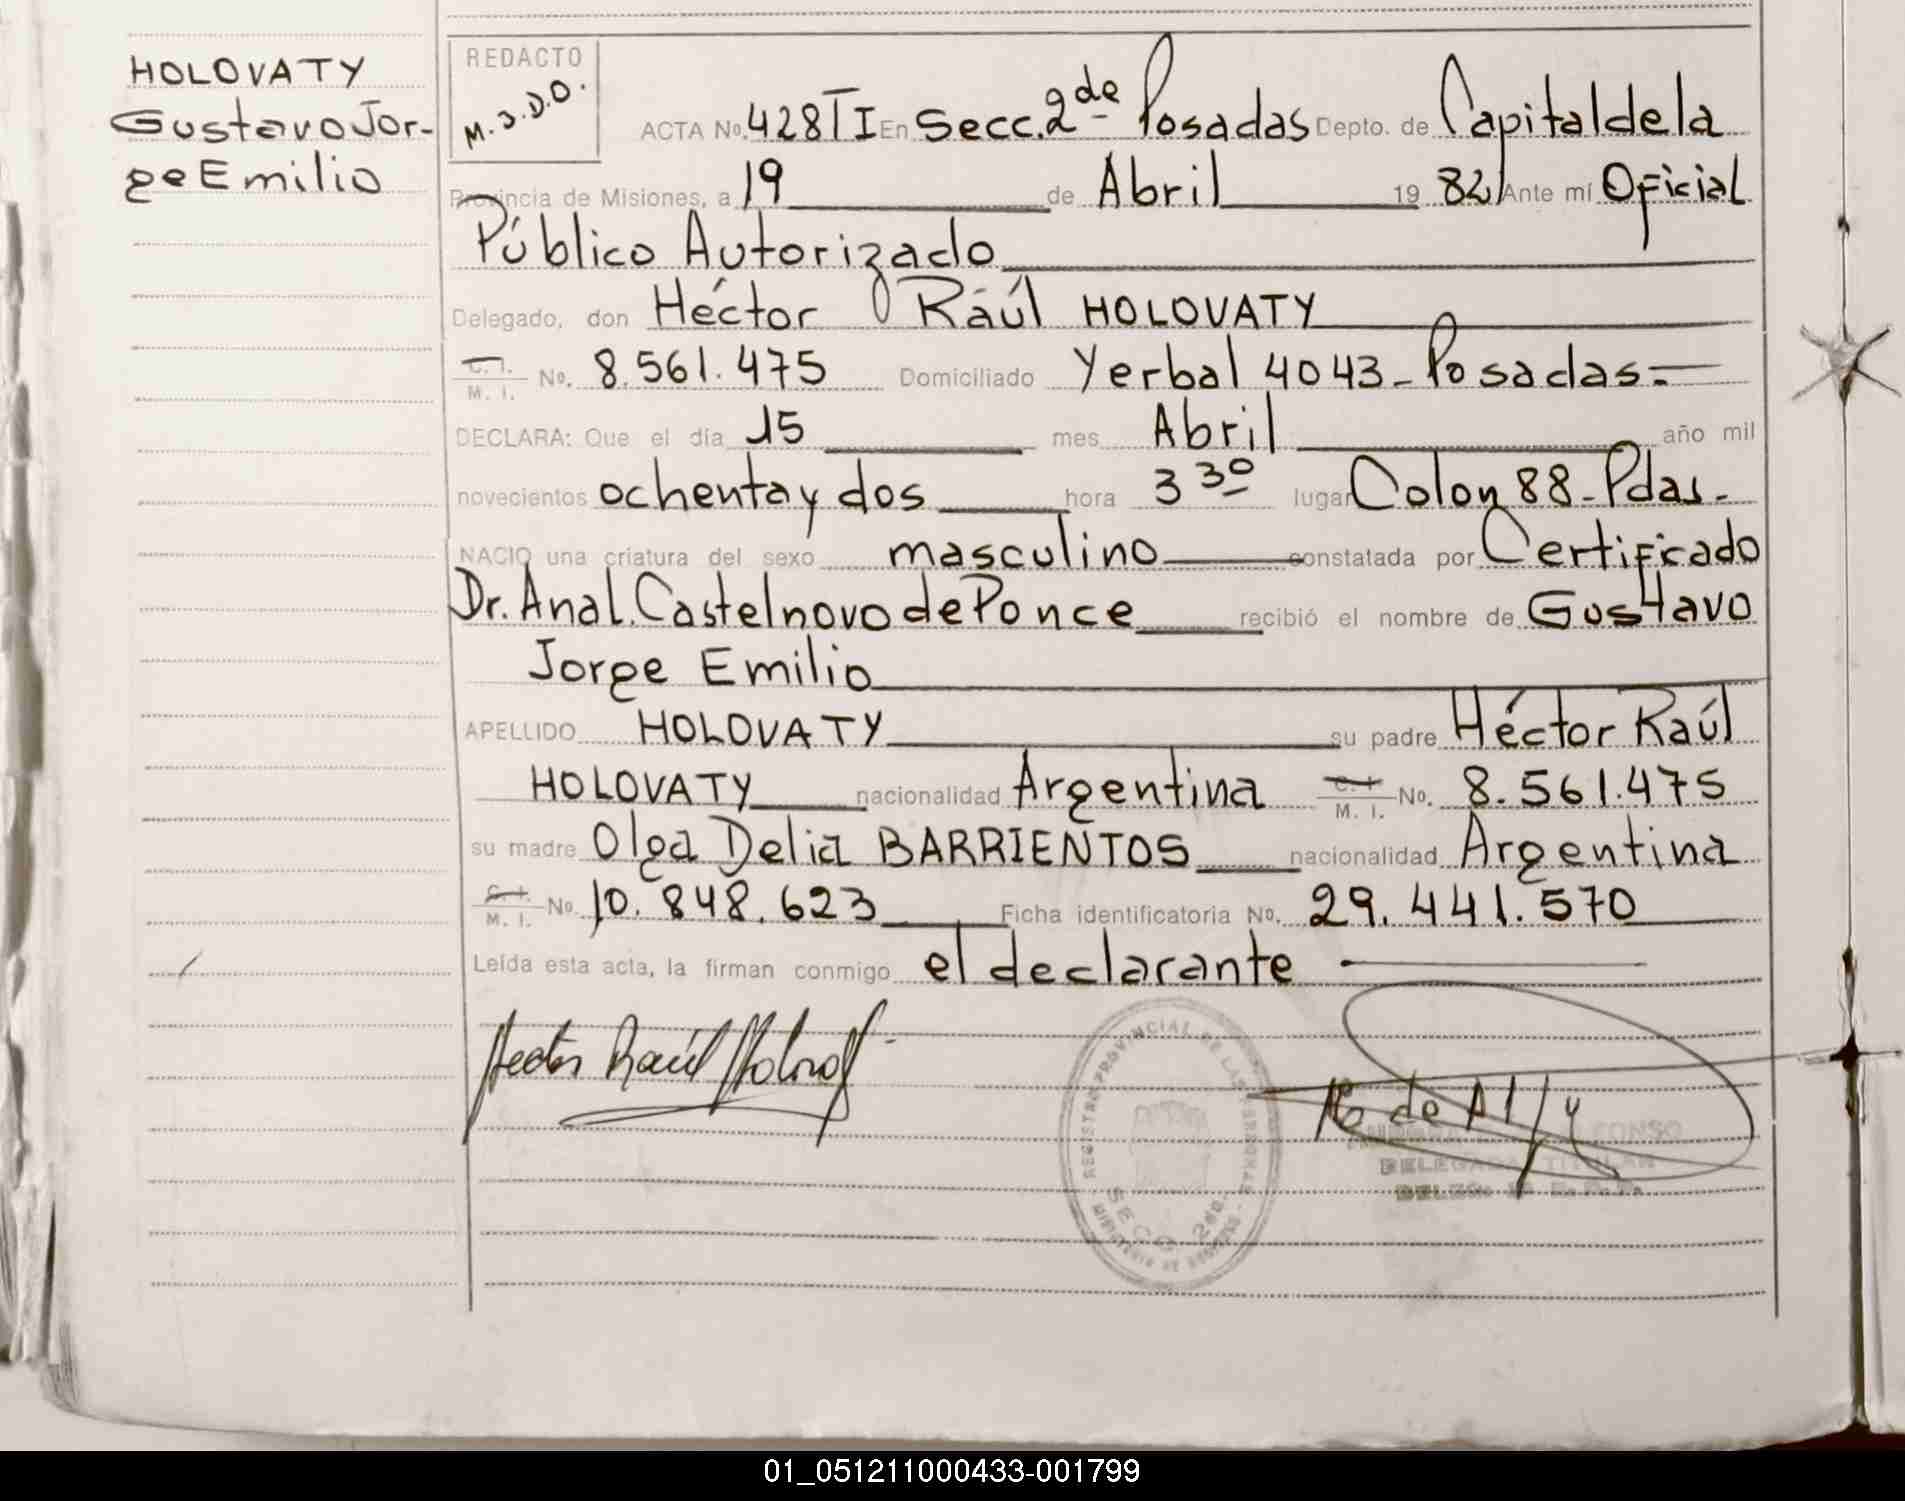 HOLOVATY
Gustavo Jor-
ge Emilio
REDACTO
M.J.D.O.
ACTA No. 428 TI En Secc. 2de Posadas Depto. de Capital de la
Provincia de Misiones, a 19 de Abril 19 82 Ante mí Oficial
Público Autorizado
Delegado, don Héctor Raúl HOLOVATY
C. I. M. I. No. 8.561.475 Domiciliado Yerbal 4043 - Posadas.-
DECLARA: Que el día 15 mes Abril año mil
novecientos ochenta y dos hora 3 30 lugar Colon 88 - Pdas.
NACIO una criatura del sexo masculino constatada por Certificado
Dr. Ana L. Castelnovo de Ponce recibió el nombre de Gustavo
Jorge Emilio
APELLIDO HOLOVATY su padre Héctor Raúl
HOLOVATY nacionalidad Argentina C. I. M. I. No. 8.561.475
su madre Olga Delia BARRIENTOS nacionalidad Argentina
C. I. M. I. No. 10.848.623 Ficha identificatoria No. 29.441.570
Leída esta acta, la firman conmigo el declarante
Hector Raúl Holovaty
REGISTRO PROVINCIAL DE LAS PERSONAS
SECC. 2da.
MINISTERIO DE
DELEGADA TITULAR
01_051211000433-001799